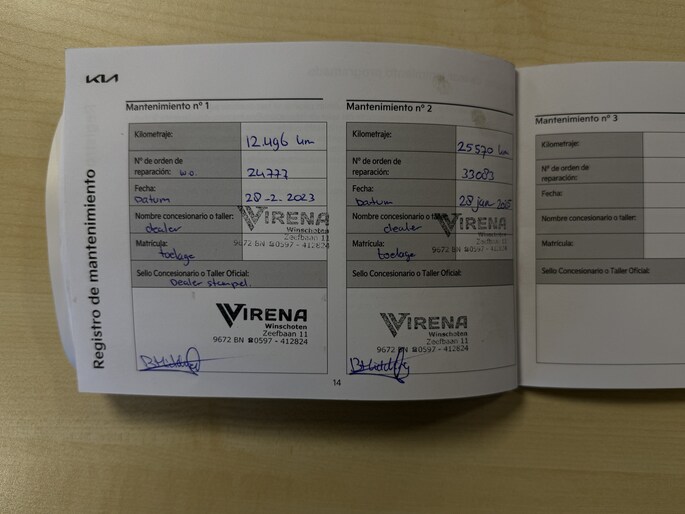 KIA
Registro de mantenimiento
Mantenimiento nº 1
Kilometraje: 12.496 km
Nº de orden de
reparación: w.o. 24777
Fecha:
Datum 28-2-2023
Nombre concesionario o taller:
dealer
VIRENA
Winschoten
Zeefbaan 11
9672 BN ☎0597 - 412824
Matrícula:
Sello Concesionario o Taller Oficial:
Dealer stempel.
VIRENA
Winschoten
Zeefbaan 11
9672 BN ☎0597 - 412824
Mantenimiento nº 2
Kilometraje: 25570 km
Nº de orden de
reparación: 33083
Fecha:
Datum 28 jan
Nombre concesionario o
dealer
VIRENA
Winschoten
Zeefbaan 11
9672 BN ☎0597 - 412824
Matrícula:
Sello Concesionario o Taller Oficial:
VIRENA
Winschoten
Zeefbaan 11
9672 BN ☎0597 - 412824
14
Mantenimiento nº 3
Kilometraje:
Nº de orden de
reparación:
Fecha:
Nombre concesionario o taller:
Matrícula:
Sello Concesionario o Taller Oficial: